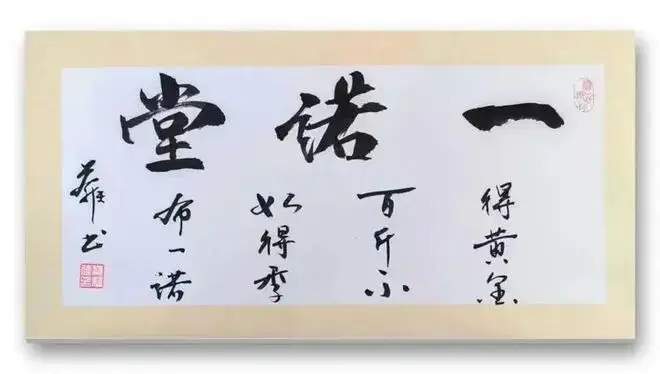 一诺堂
得黄金
百斤不
如得季
布一诺